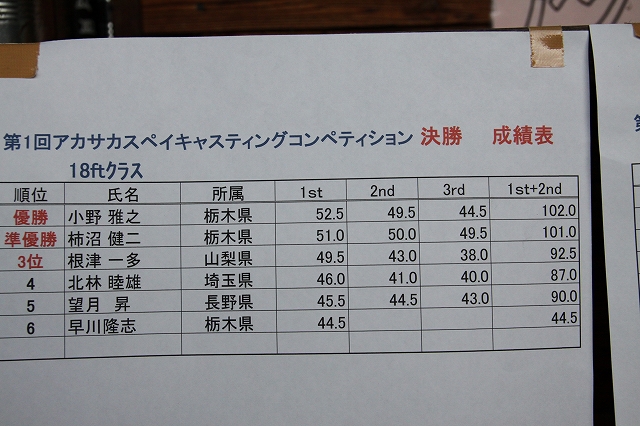 第1回アカサカスペイキャスティングコンペティション 決勝 成績表
18ftクラス
順位 氏名 所属 1st 2nd 3rd 1st+2nd
優勝 小野 雅之 栃木県 52.5 49.5 44.5 102.0
準優勝 柿沼 健二 栃木県 51.0 50.0 49.5 101.0
3位 根津 一多 山梨県 49.5 43.0 38.0 92.5
4 北林 睦雄 埼玉県 46.0 41.0 40.0 87.0
5 望月 昇 長野県 45.5 44.5 43.0 90.0
6 早川隆志 栃木県 44.5 44.5